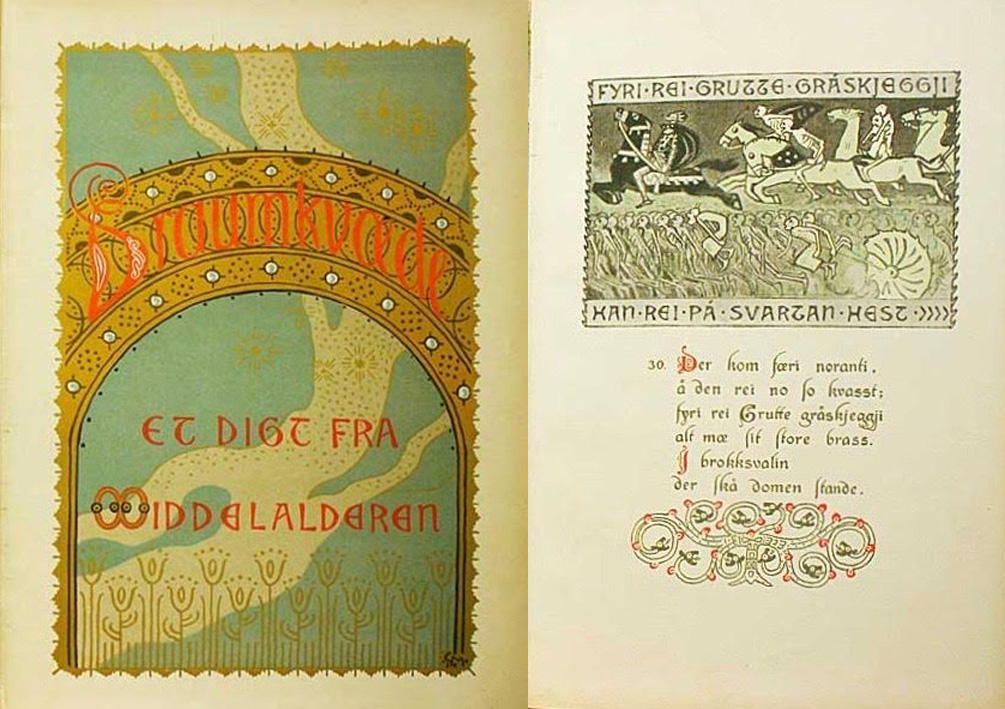 Draumkvæde
ET DIGT FRA
MIDDELALDEREN
FYRI·REI·GRUTTE·GRÅSKJEGGJI
HAN·REI·PÅ·SVARTAN·HEST·
30. Der kom færi noranti,
å den rei no so kvasst;
fyri rei Grutte gråskjeggji
alt mæ sit store brass.
I brokksvalin
der skå domen stande.